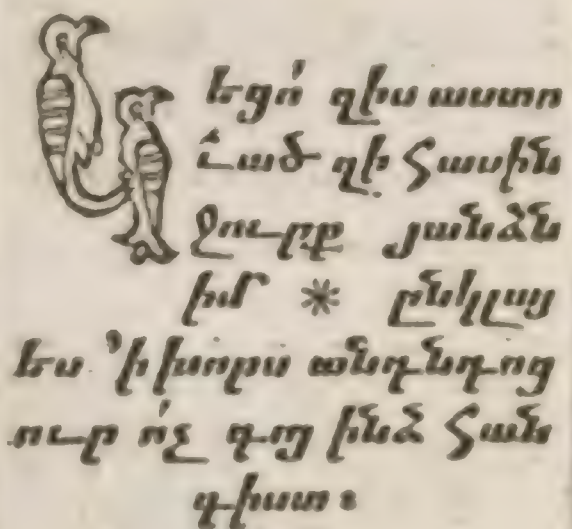 Կեցո՛ զիս աստո
ւած զի հասին
ջուրք յանձն
իմ * ընկլայ
ես ՚ի խորս անդնդոց
ուր ո՛չ գոյ ինձ հան
գիստ ։